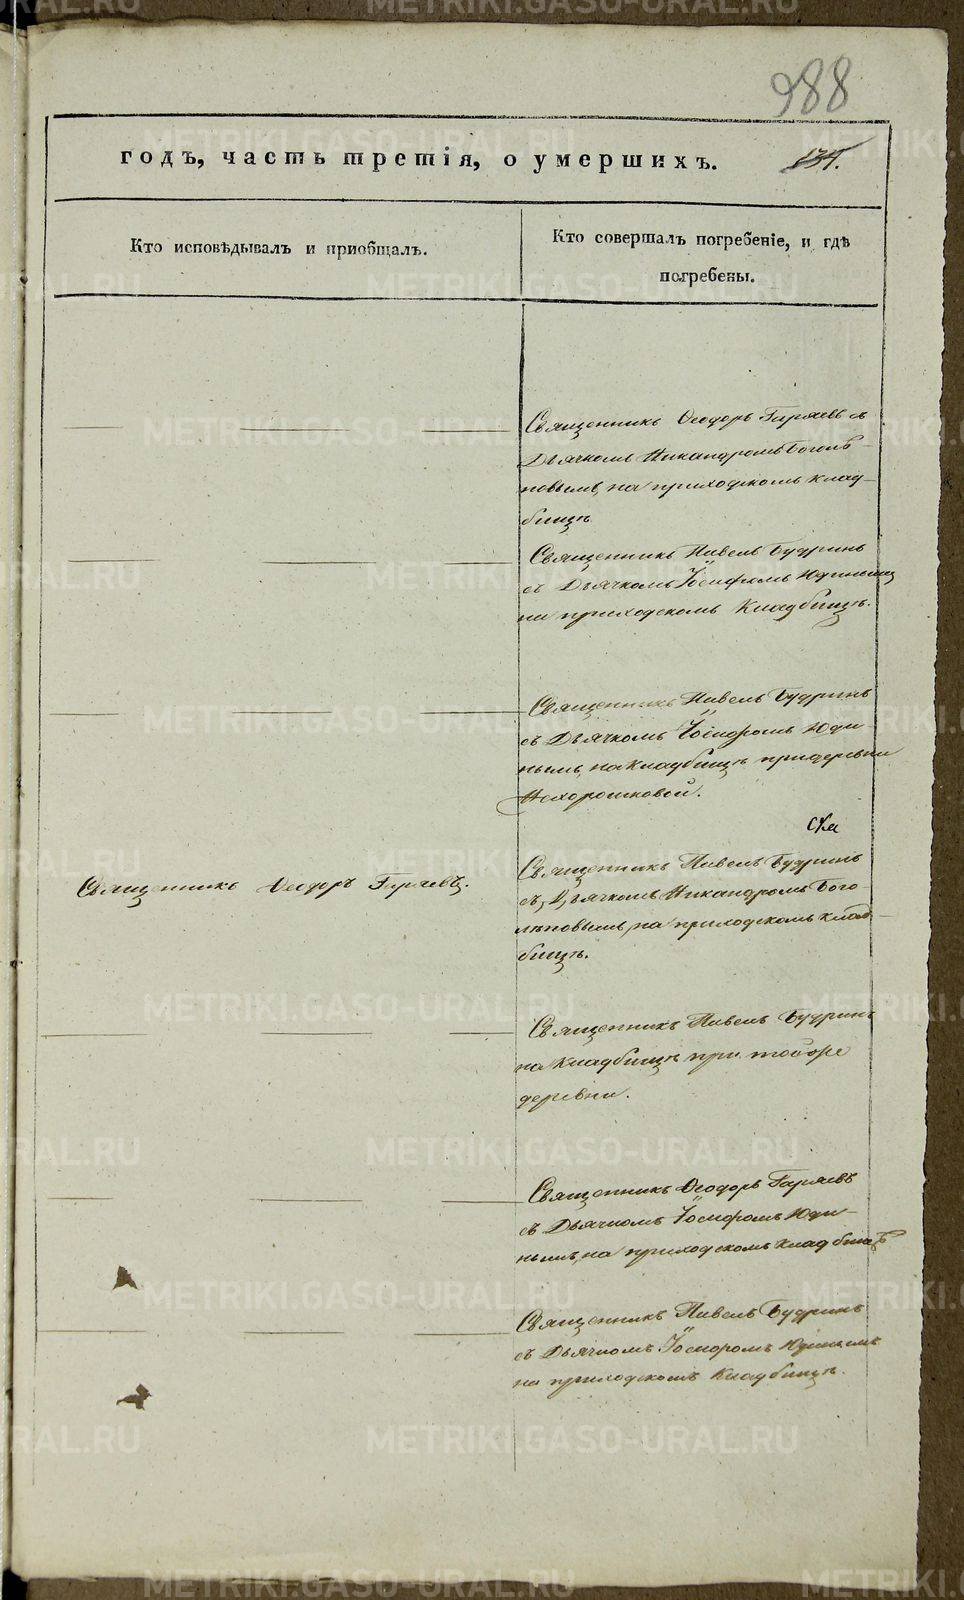 988
годъ, часть третія, о умершихъ.
134.
Кто исповѣдывалъ и пріобщалъ.
Кто совершалъ погребеніе, и гдѣ
погребены.
Священникъ Ѳеодоръ Гаряевъ съ
Дьячкомъ Никандромъ Боголѣ-
повымъ, на приходскомъ клад-
бищѣ
Священникъ Павелъ Будринъ
съ Дьячкомъ Іосифомъ Юдинымъ
на приходскомъ Кладбищѣ.
Священникъ Павелъ Будринъ
съ Дьячкомъ Іосифомъ Юди-
нымъ, на Кладбищѣ при деревни
Нехорошковой.
Священникъ Ѳеодоръ Гаряевъ.
Священникъ Павелъ Будринъ
съ Дьячкомъ Никандромъ Бого-
лѣповымъ, на приходскомъ клад-
бищѣ.
Священникъ Павелъ Будринъ
на Кладбищѣ при той же
деревни.
Священникъ Ѳеодоръ Гаряевъ
съ Дьячкомъ Іосифомъ Юди-
нымъ, на приходскомъ кладбищѣ
Священникъ Павелъ Будринъ
съ Дьячкомъ Іосифомъ Юдинымъ
на приходскомъ Кладбищѣ.
METRIKI.GASO-URAL.RU